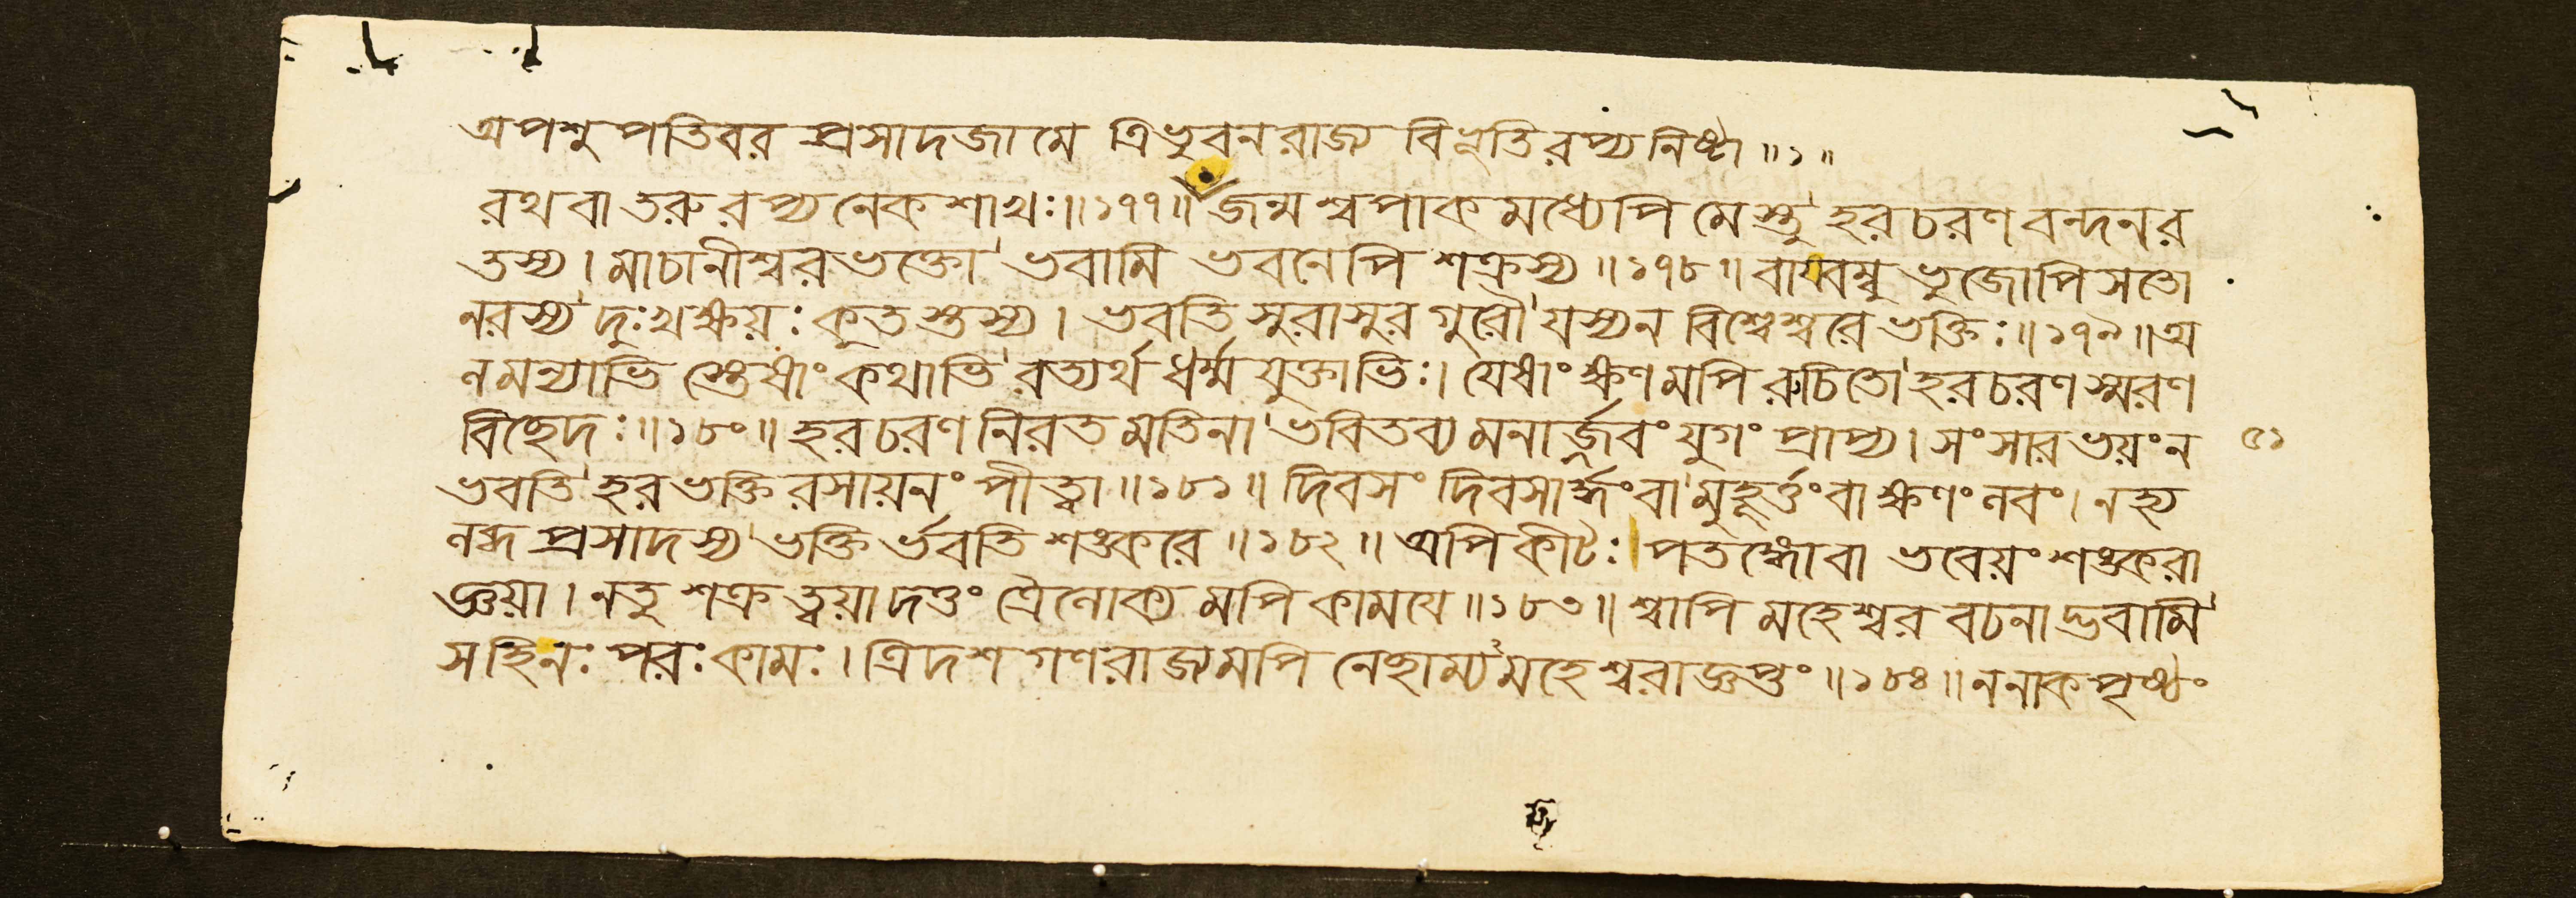 অপশুপতিবর প্রসাদজামে ত্রিভুবনরাজ্য বিভূতিরপ্যনিষ্টা ॥১॥
রথবাতরুরপ্যনেকশাখঃ॥১৭৭॥ জন্মশ্বপাকমধ্যেপি মেস্তু হরচরণবন্দনর
তস্য। মাচানীশ্বরভক্তো ভবামি ভবনেপি শক্রস্য॥১৭৮॥ বায্বম্বুভুজোপিসতো
নরস্য দুঃখক্ষয়ঃ কুতস্তস্য। ভবতি সুরাসুরগুরৌ যস্যন বিশ্বেশ্বরে ভক্তিঃ॥১৭৯॥অ
লমন্যাভি স্তেষাং কথাভি রত্যর্থ ধর্ম্মযুক্তাভিঃ। যেষাং ক্ষণমপি রুচিতো হরচরণস্মরণ
বিছেদঃ॥১৮০॥ হরচরণনিরতমতিনা ভবিতব্যমনার্জ্জবং যুগং প্রাপ্য। সংসারভয়ংন ৫১
ভবতি হরভক্তিরসায়নং পীত্বা॥১৮১॥ দিবসং দিবসার্দ্ধংবা মুহূর্ত্তংবা ক্ষণংলবং। নহ্য
লব্ধপ্রসাদস্য ভক্তি র্ভবতি শঙ্করে॥১৮২॥ অপিকীটঃ পতঙ্গোবা ভবেয়ং শঙ্করা
জ্ঞয়া। নতু শক্র ত্বয়াদত্তং ত্রৈলোক্যমপি কাময়ে॥১৮৩॥ শ্বাপি মহেশ্বর বচনাদ্ভবামি
সহিনঃ পরঃকামঃ। ত্রিদশগণরাজ্যমপি নেহাম্য মহেশ্বরাজ্ঞপ্তং॥১৮৪॥ ননাকপৃষ্ঠং